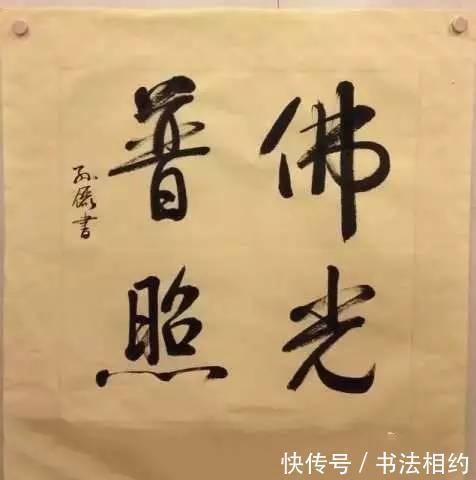 佛光
普照
孙儷書
快传号 / 书法相约